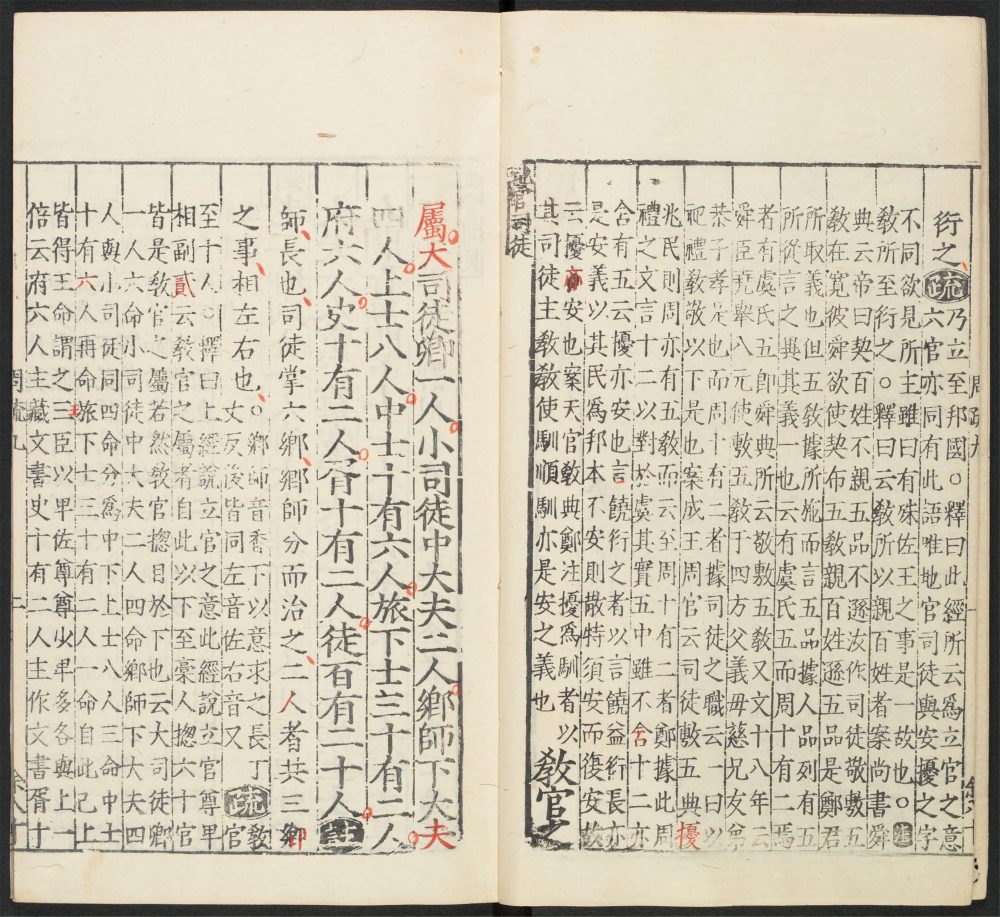 衍之、疏乃立至邦國○釋曰此經所云爲立官之意
六官亦同有此語唯地官司徒與安擾之字
不同欲見所主雖曰有殊佐王之事是一故也○注
教所至衍之○釋曰云教所以親百姓者案尚書舜
典云帝曰契百姓不親五品不遜汝作司徒敬敷五
教在寬彼舜欲使契布五教親百姓遜五品是鄭君
所取義也但五教據所施而言五品據人品列有五
所從言之異其義一也云有虞氏五而周十有二焉
者有虞氏五即舜典所云敬敷五教又文十八年云
舜臣堯舉八元使敷五教于四方父義毋慈兄友弟
恭子孝是也而周十有二者據司徒之職云一曰以
祀禮教敬以下是也案成王周官云司徒敷五典擾
兆民則周亦有五教而云至周十有二者鄭據此周
禮之文言十二以對於虞其實五中雖不含十二亦
含有五云擾亦安也言饒衍之者以言饒益衍長亦
是安義以其民爲邦本不安則散特須安而復安故
云擾亦安也案天官教典鄭注擾爲馴者以
其司徒主教教使馴順馴亦是安之義也
教官之
官司徒
屬大司徒卿一人小司徒中大夫二人鄉師下大夫
四人上士八人中士十有六人旅下士三十有二人
府六人史十有二人胥十有二人徒百有二十人注
師長也、司徒掌六鄉、鄉師分而治之、二人者共三鄉
之事、相左右也、○鄉師音香下以意求之長丁
丈反後皆同左音佐右音又
疏教官
至十人○釋曰上經說立官之意此經說立官尊卑
相副貳云教官之屬者自此以下至稾人揔六十官
皆是教官之屬若然教官揔目於下也云大司徒卿
一人六命小司徒中大夫二人四命鄉師下大夫四
人與小司徒同四命分爲中下上士八人三命中士
十有六人再命旅下士三十有二人一命自此已上
皆得王命謂之王臣以卑佐尊尊少卑多各與上一
倍云府六人主藏文書史十有二人主作文書胥十